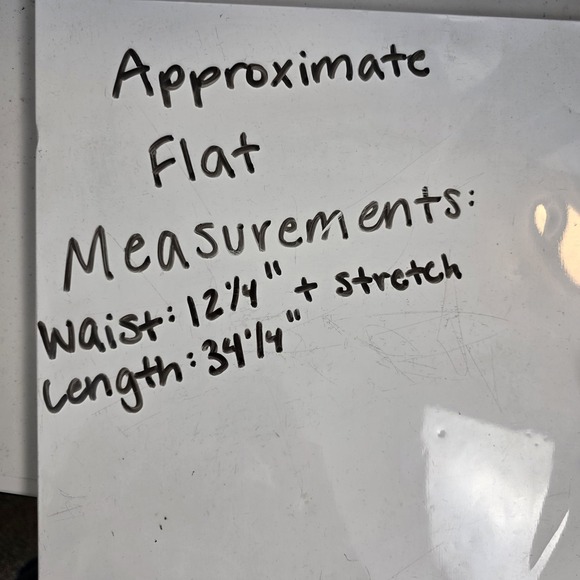 Approximate
Flat
Measurements:
Waist: 12 1/4" + stretch
Length: 34 1/4"